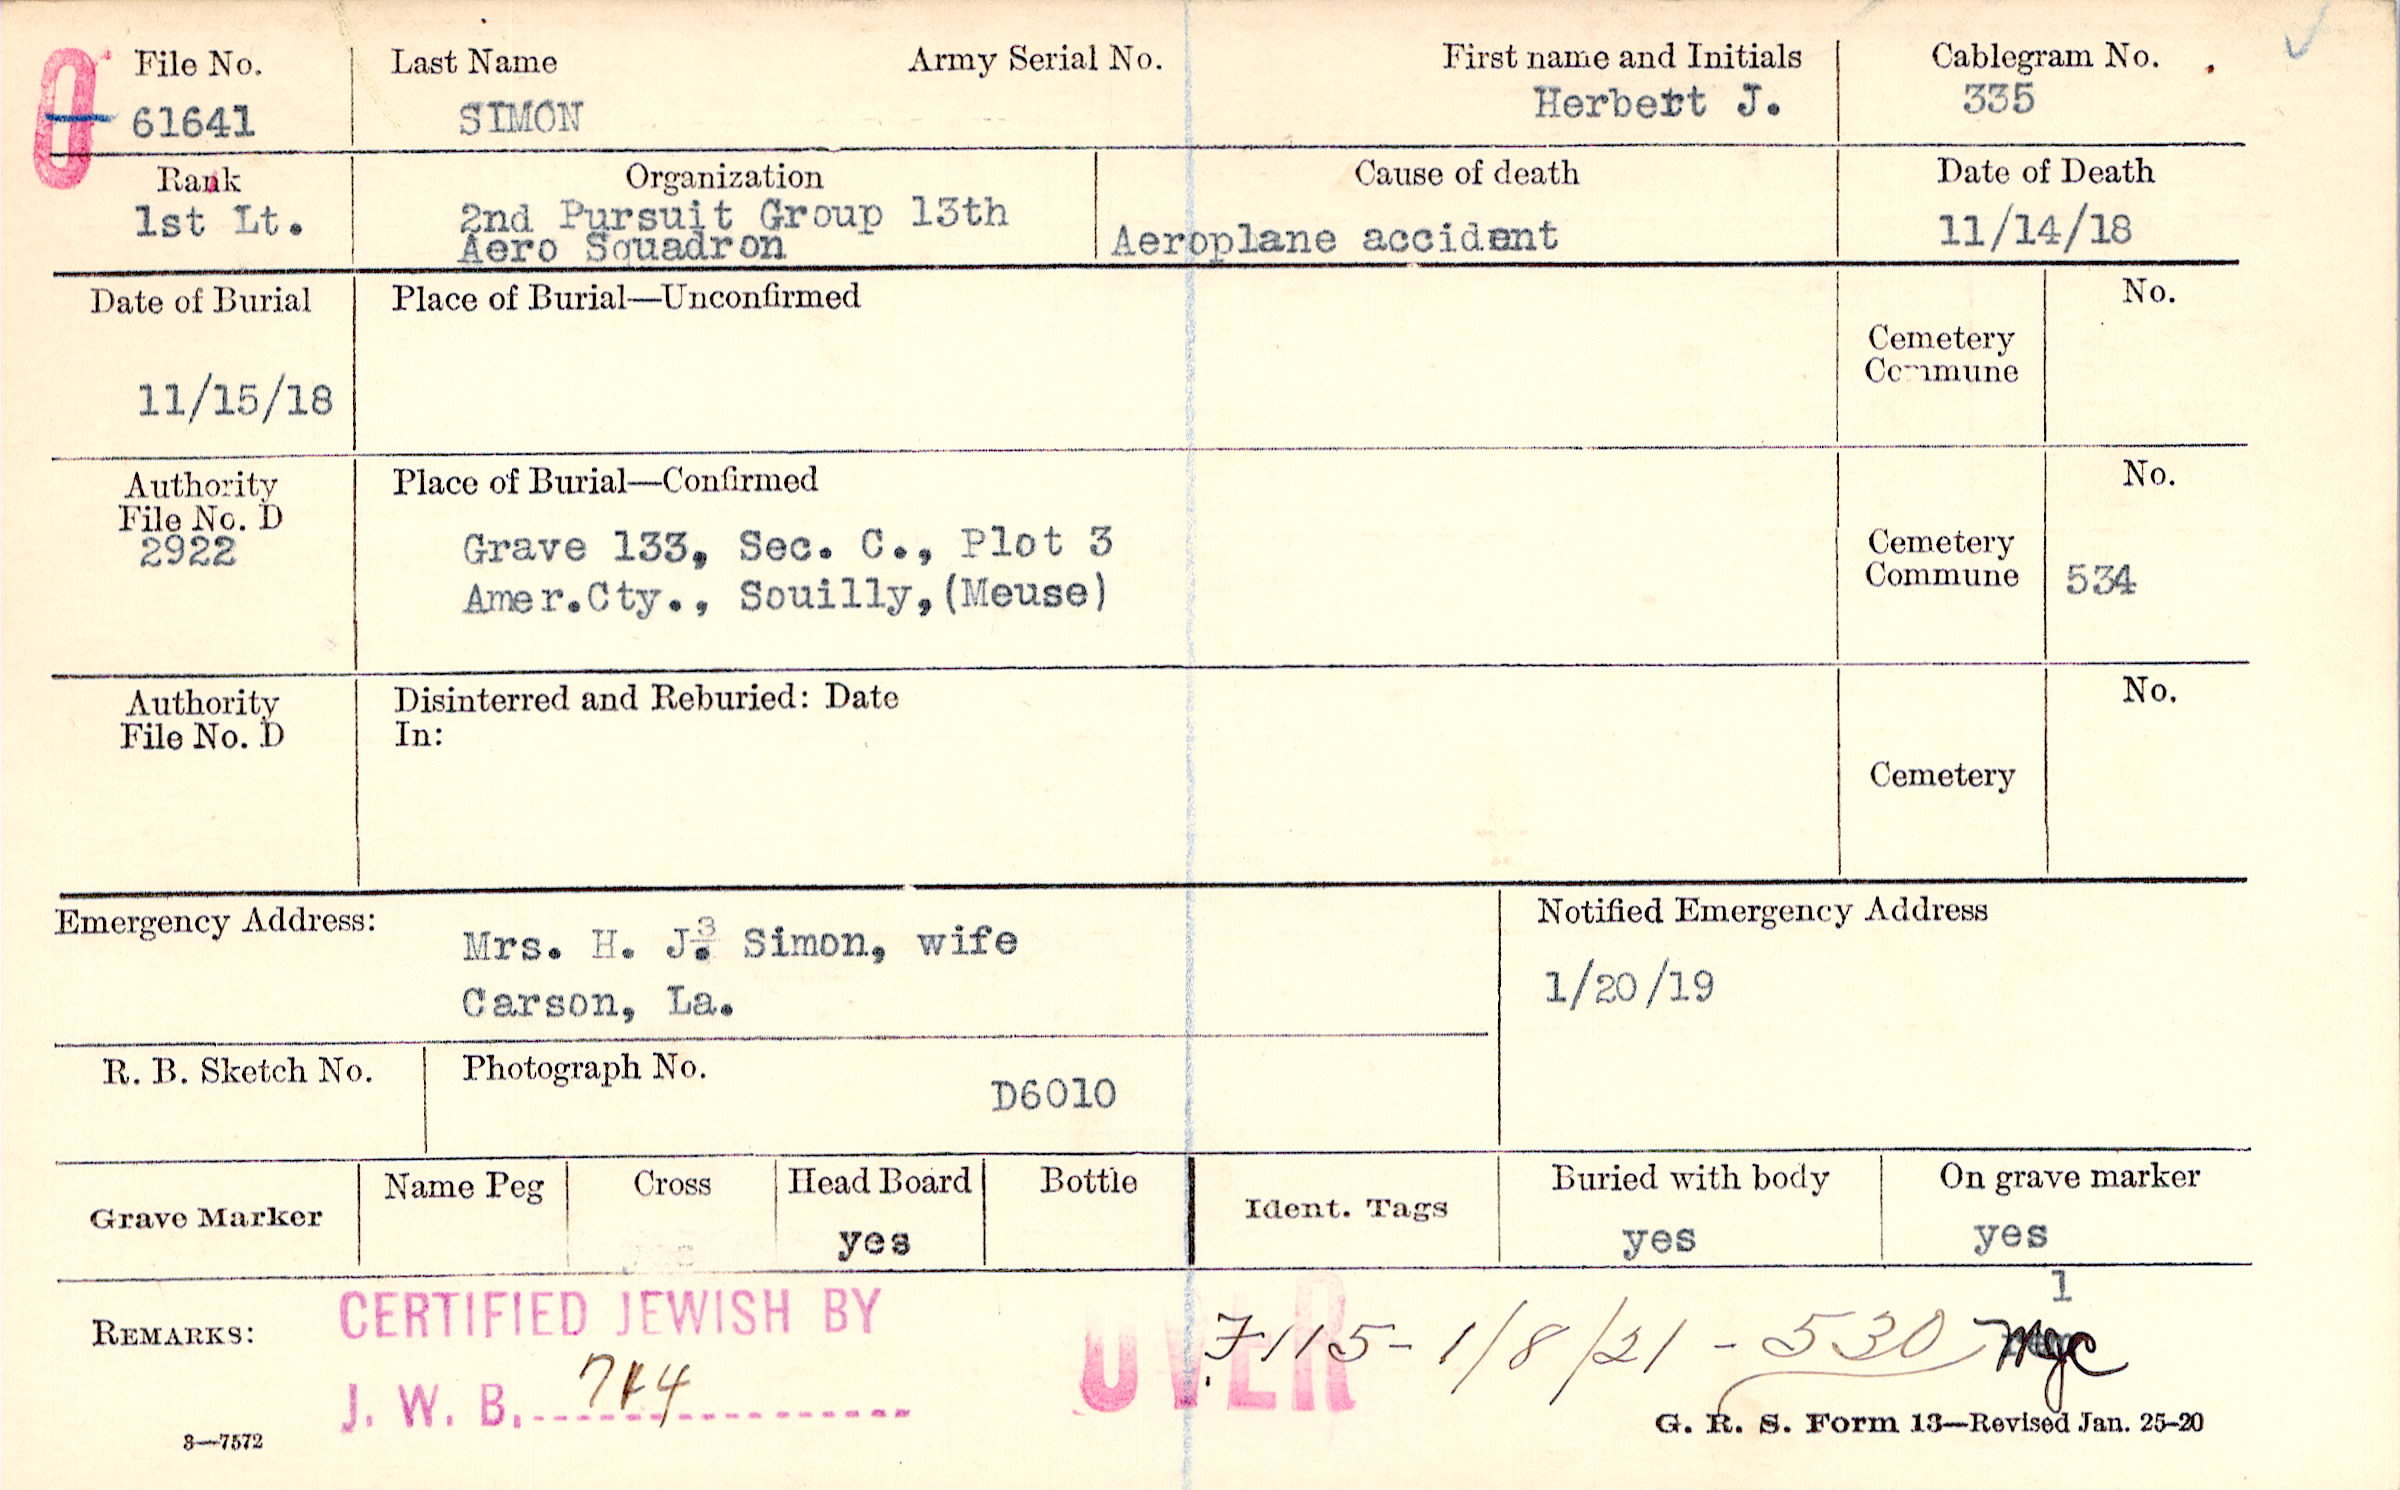 File No. Last Name Army Serial No. First name and Initials Cablegram No.
61641 SIMON Herbert J. 335
Rank Organization Cause of death Date of Death
1st Lt. 2nd Pursuit Group 13th Aeroplane accident 11/14/18
Aero Squadron
Date of Burial Place of Burial—Unconfirmed No.
Cemetery
Commune
11/15/18
Authority Place of Burial—Confirmed No.
File No. D
2922 Grave 133, Sec. C., Plot 3 Cemetery
Amer.Cty., Souilly,(Meuse) Commune 534
Authority Disinterred and Reburied: Date No.
File No. D In:
Cemetery
Emergency Address: Notified Emergency Address
Mrs. H. J. Simon, wife
Carson, La. 1/20/19
R. B. Sketch No. Photograph No. D6010
Grave Marker Name Peg Cross Head Board Bottle Ident. Tags Buried with body On grave marker
yes yes yes
1
REMARKS: CERTIFIED JEWISH BY
J. W. B. 744
OVER
F115-1/8/21-530 Mgc
3—7572 G. R. S. Form 13—Revised Jan. 25-20